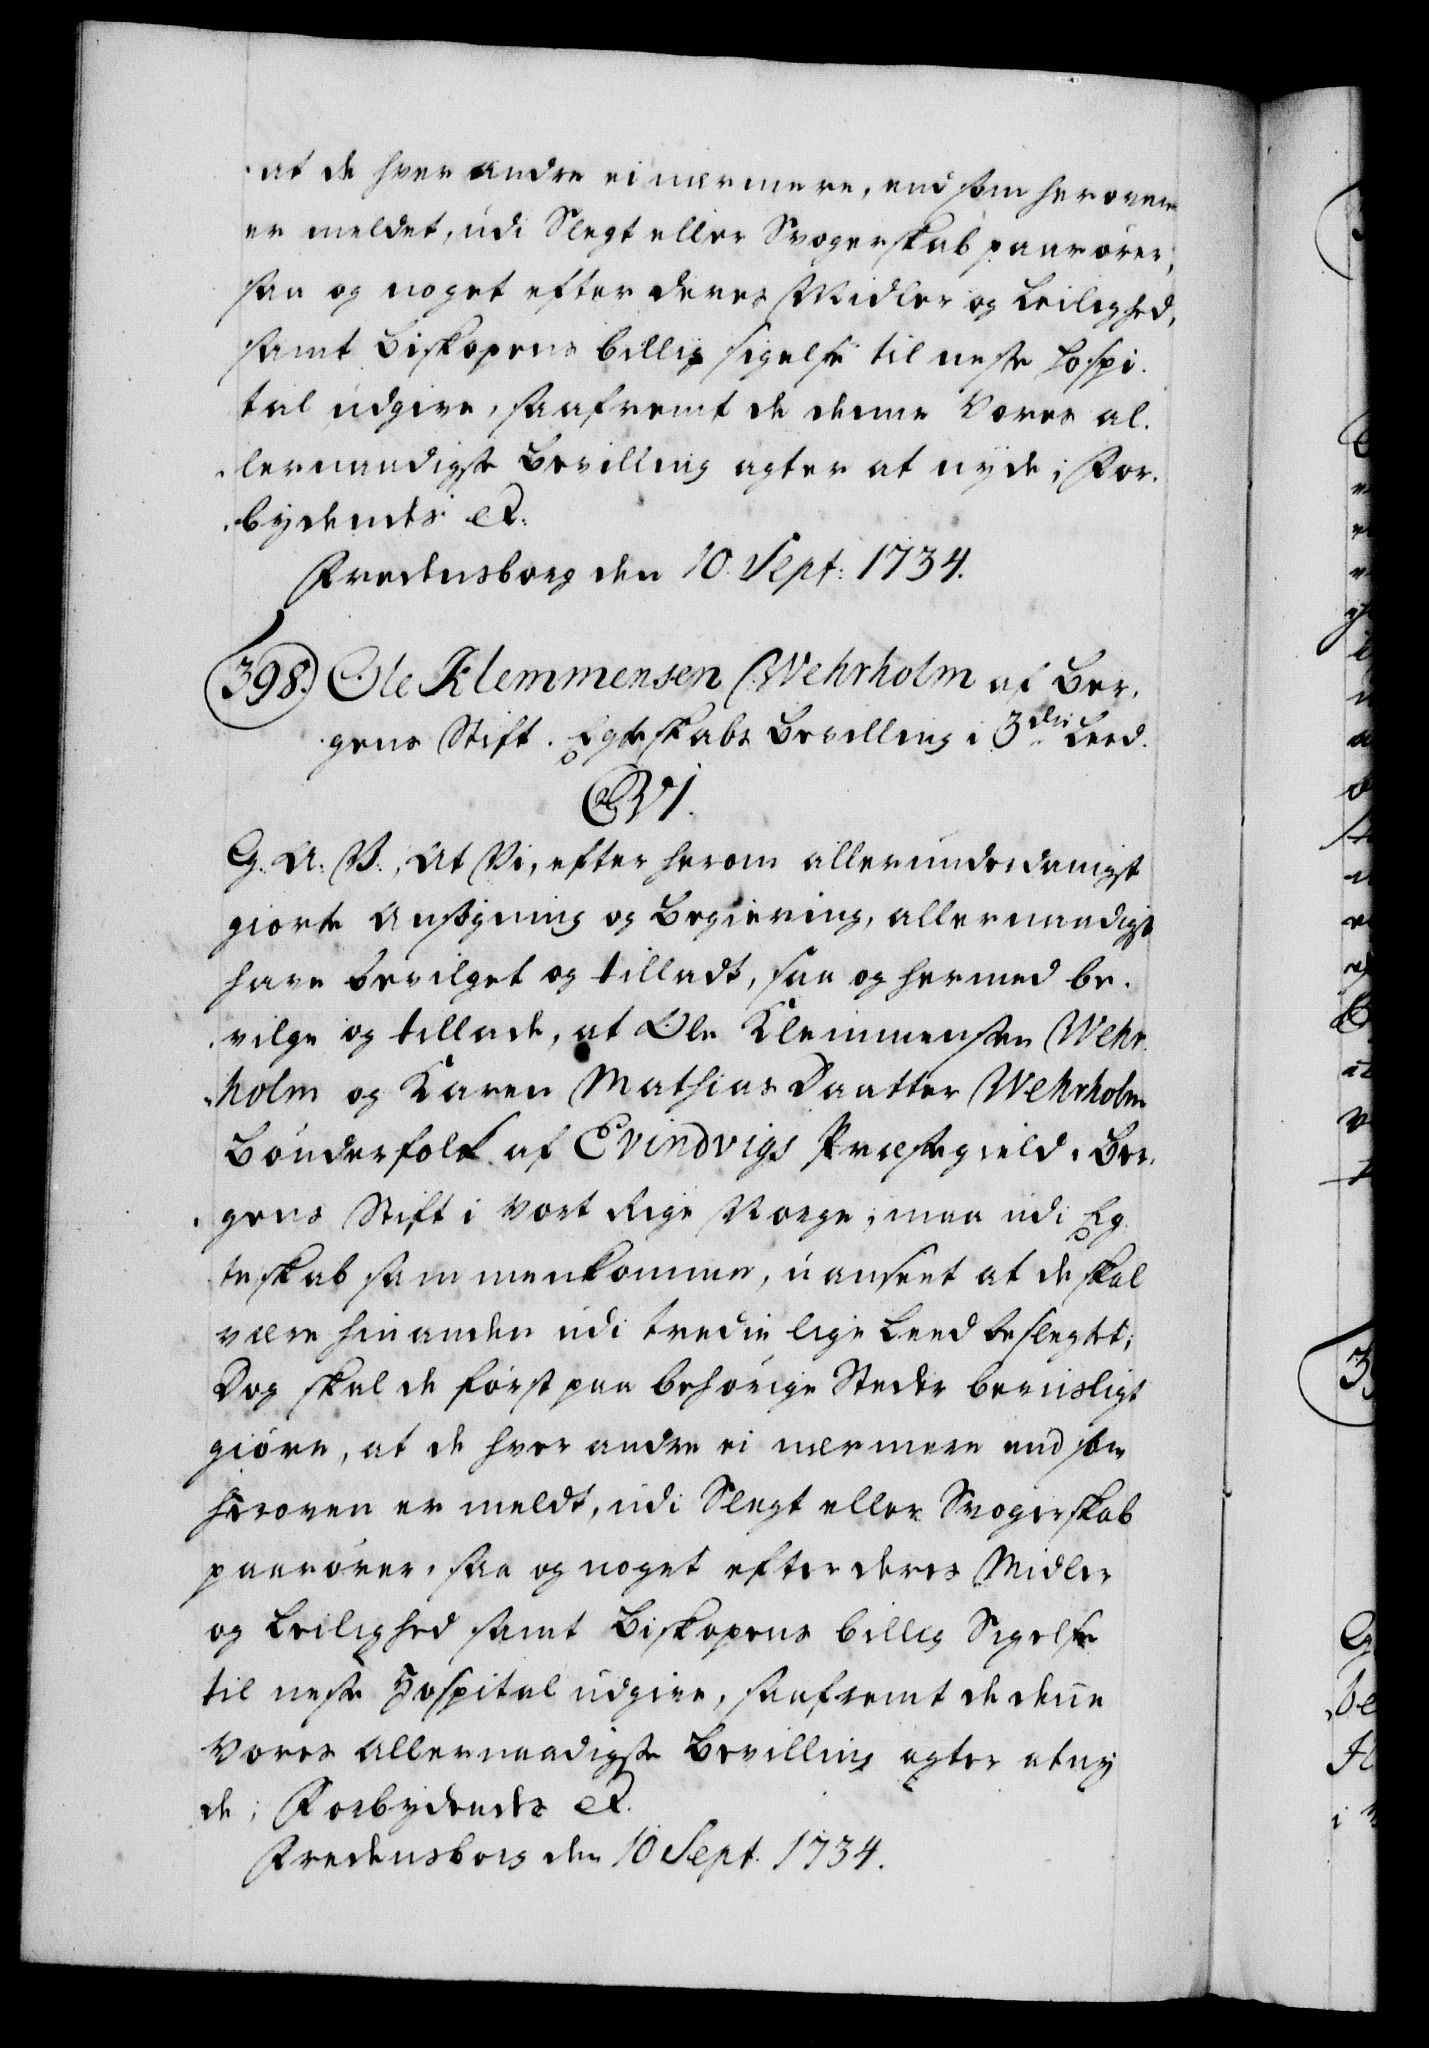 at de hver andre ei nærmere, end som heroven
er meldet, udi Slegt eller Svogerskab paarører,
saa og noget efter deres Midler og Leilighed,
samt Biskopens billig sigelse til neste Hospi-
tal udgive, saafremt de denne Vores al-
lernaadigste Bevilling agter at nyde; For-
bydendes etc.
Fredensborg den 10. Sept: 1734.
398. Ole Klemmensen Wehrholm af Ber-
gens Stift. Egteskabs Bevilling i 3die Leed.
C. VI.
G. A. V., At Vi, efter herom allerunderdanigst
giorte Ansøgning og Begiering, allernaadigst
have bevilget og tilladt, saa og hermed be-
vilge og tillade, at Ole Klemmensen Wehr-
holm og Karen Mathias Daatter Wehrholm
Bønderfolk af Evindvigs Præstegield, Ber-
gens Stift i Vort Rige Norge, maa udi Eg-
teskab sammenkomme, uanseet at de skal
være hinanden udi tredie lige Leed beslegtet;
Dog skal de først paa behørige Steder beviisligt
giøre, at de hver andre ei nærmere end som
heroven er meldt, udi Slegt eller Svogerskab
paarører, saa og noget efter deres Midler
og Leilighed samt Biskopens billig Sigelse
til neste Hospital udgive, saafremt de denne
Vores allernaadigste Bevilling agter at ny-
de; Forbydendes etc.
Fredensborg den 10 Sept. 1734.